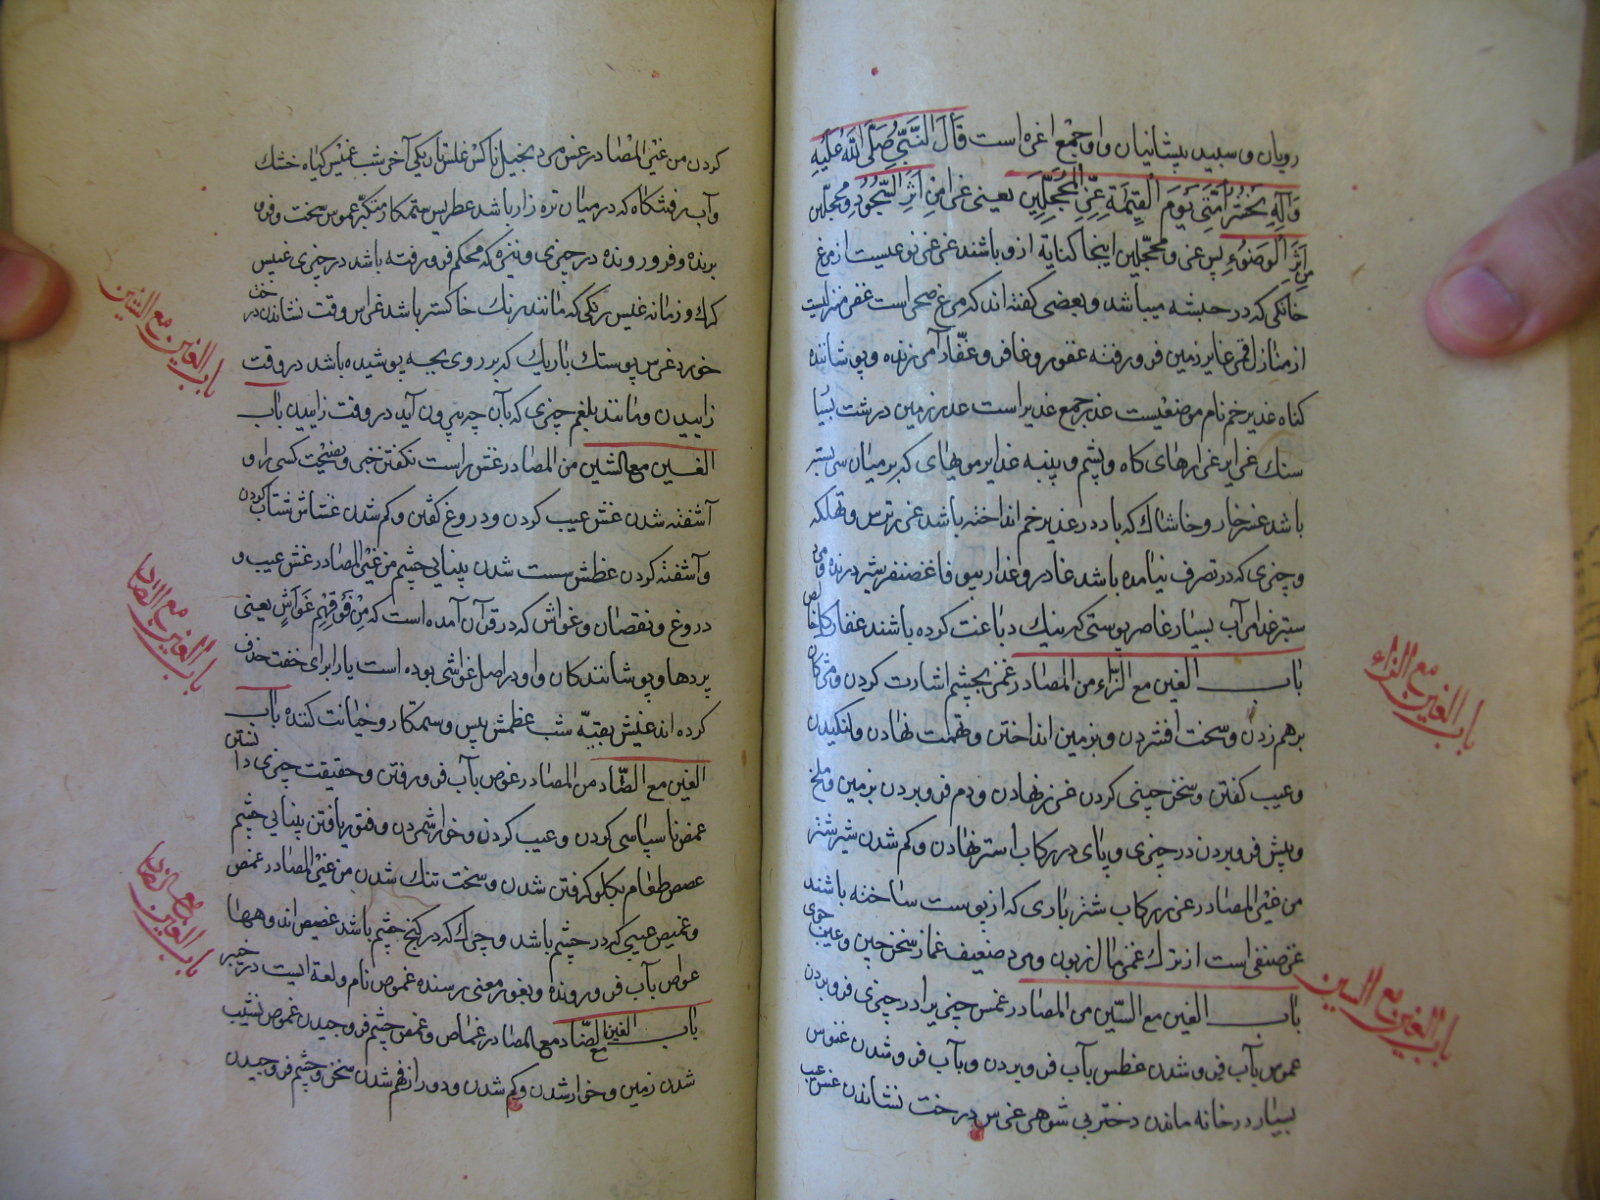 رویان و سپید پیشانیان و او جمع اغره است قَالَ النَّبِیّ صَلَّی اللّٰه عَلَیْهِ
وَآلِهِ یُحْشَرُ اُمَّتِی یَوْمَ الْقِیٰمَةِ غُرُّ الْمُحَجَّلِینَ یعنی غرا مِن اَثَرِ السُّجُودِ و محجلین
مِن اَثَرِ الْوُضُوءِ پس غر و محجلین اینجا کنایة ازو باشند غرغر نوعیست از مرغ
خانکی که در حبشه میباشد و بعضی کفته اند که مرغ صحراست غفر منزلیت
از منازل قمر غایر زمین فرو رفته غفور و غافر و غفّار آمرزنده و پوشاننده
کناه غدیر خم نام موضعیست غدر جمع غدیر است غدر زمین درشت بسیا
سنك غرایر غرارهای کاه و پشم و پنبه غدایر مویهای که بر میان سر
باشد غثر خار و خاشاك که باد در غدیر خم انداخته باشد غرر ترس و تهلکه
و چیزی که در تصرف نیامده باشد غادر و غدار بیوفا غضنفر شیر درنده و
آب بسیار غاصر پوستی که نیك دباغت کرده باشند غفار
باب الغین مع الزّاء من المصادر غمز بچشم اشارت کردن و مژکان
برهم زدن و سخت افشردن و بزمین انداختن و تهمت نهادن و لنکیدن
و عیب کفتن و سخن چینی کردن غرز نهادن و دم فرو بردن بزمین و ملخ
و پیش فرو بردن در چیزی و پای در رکاب استر نهادن و کم شدن شیر شتر
من غیر المصادر غرز رکاب شتر باری که از پوست ساخته باشند
غز صنفی است از ترك غمز مال زبون و مرد ضعیف غماز سخن چین و عیب جوی
باب الغین مع السّین من المصادر غمس چیزی را در چیزی فرو بردن
غموس بآب فرو شدن غطس بآب فرو بردن و بآب فرو شدن غنوس
بسیار در خانه ماندن دختر بی شوهر غرس درخت نشاندن غس عیب
باب الغین مع الزاء
باب الغین مع السین
کردن من غیر المصادر غس مرد بخیل ناکس غلس تاریکی آخر شب غمیس کیاه خشك
و آب رفتنکاه که در میان تره زار باشد غطریس ستمکار متکبّر غموس سخت و فرو
برنده و فرو رونده در چیزی و نیزه که محکم فرو رفته باشد در چیزی غبیس
کرك و زمانه غبس رنکی که مانند رنك خاکستر باشد غراس وقت نشاندن درخت
خورد غرس پوستك باریك که بر روی بچه پوشیده باشد در وقت
زاییدن و مانند بلغم چیزی که بآن چه بیرون آید در وقت زاییدن باب
الغین مع الشین من المصادر غش راست نکفتن خبر و نصیحت کسی را و
آشفته شدن غش عیب کردن و دروغ کفتن و کم شدن غشاش شتاب کردن
و آشفته کردن غطش سست شدن بینایی چشم من غیر المصادر غش عیب و
دروغ و نقصان و غواش که در قرآن آمده است که مِنْ فَوْقِهِم غَوَاشٍ یعنی
پردها و پوشانندکان و او در اصل غواشی بوده است یا را برای خفت حذف
کرده اند غبش بقیّه شب غطمش پس و ستمکار و خیانت کننده باب
الغین مع الصّاد من المصادر غوص بآب فرو رفتن و حقیقت چیزی دانستن
غمص ناسپاسی کردن و عیب کردن و خوار شمردن و فتور یافتن بینایی چشم
غصص طعام بکلو کرفتن شدن و سخت تنك شدن من غیر المصادر غمص
و غمیص عیبی که در چشم باشد و چرك که در کنج چشم باشد غصیص اندوهها
غواص بآب فرو رونده و بغور معنی رسنده غموص نام قلعة ایست در خیبر
باب الغین مع الضّاد مع المصادر غماض و غمض چشم فرو چیدن غموض نشیب
شدن زمین و خوار شدن و کم شدن و دور از فهم شدن سخن و چشم فرو چیدن
باب الغین مع الشین
باب الغین مع الصاد
باب الغین مع الضاد